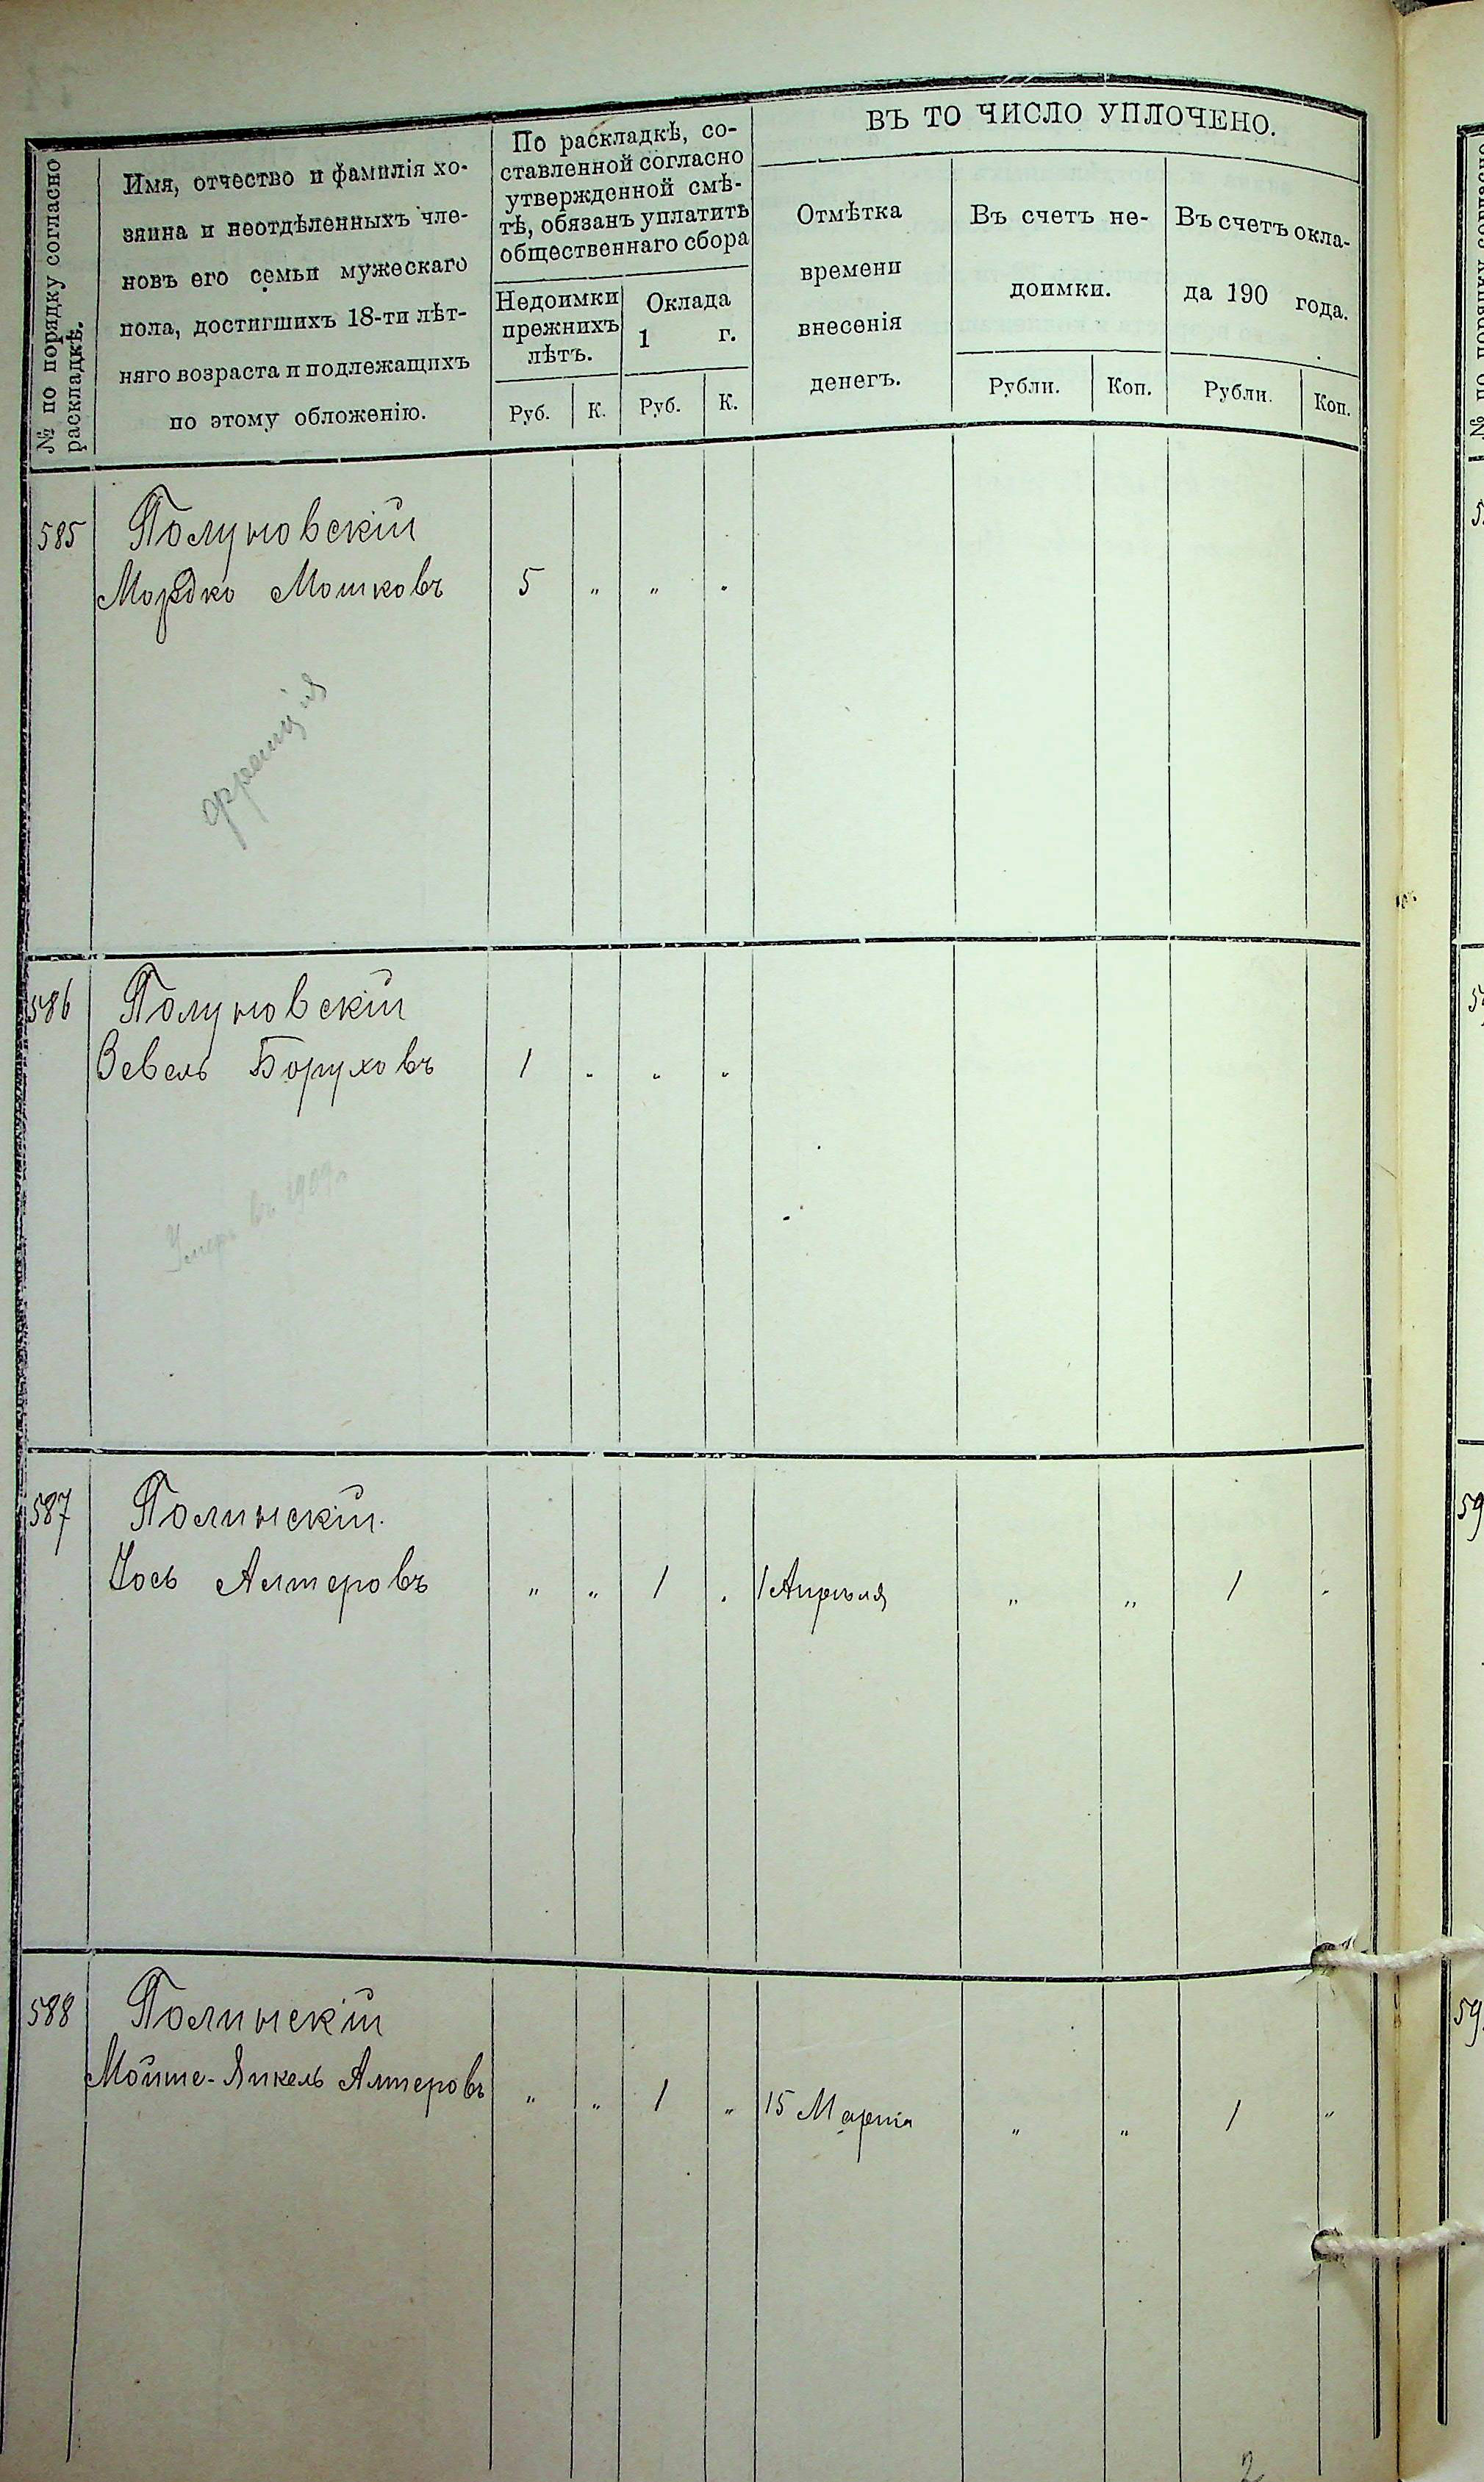 № по порядку согласно
раскладкѣ.
Имя, отчество и фамилія хо-
зяина и неотдѣленныхъ чле-
новъ его семьи мужескаго
пола, достигшихъ 18-ти лѣт-
няго возраста и подлежащихъ
по этому обложенію.
По раскладкѣ, со-
ставленной согласно
утвержденной смѣ-
тѣ, обязанъ уплатить
общественнаго сбора
Недоимки
прежнихъ
лѣтъ.
Оклада
1 г.
Руб. К. Руб. К.
ВЪ ТО ЧИСЛО УПЛОЧЕНО.
Отмѣтка
времени
внесенія
денегъ.
Въ счетъ не-
доимки.
Рубли. Коп.
Въ счетъ окла-
да 190 года.
Рубли. Коп.
585 Полуновскій
Мордко Мошковъ 5 „ „ „
франція
586 Полуновскій
Зевель Боруховъ 1 „ „ „
Умеръ въ 1909 г
587 Полинскій.
Іось Алтеровъ „ „ 1 „ 1 Апрѣля „ „ 1 „
588 Полинскій
Мойше-Янкель Алтеровъ „ „ 1 „ 15 Марта „ „ 1 „
2